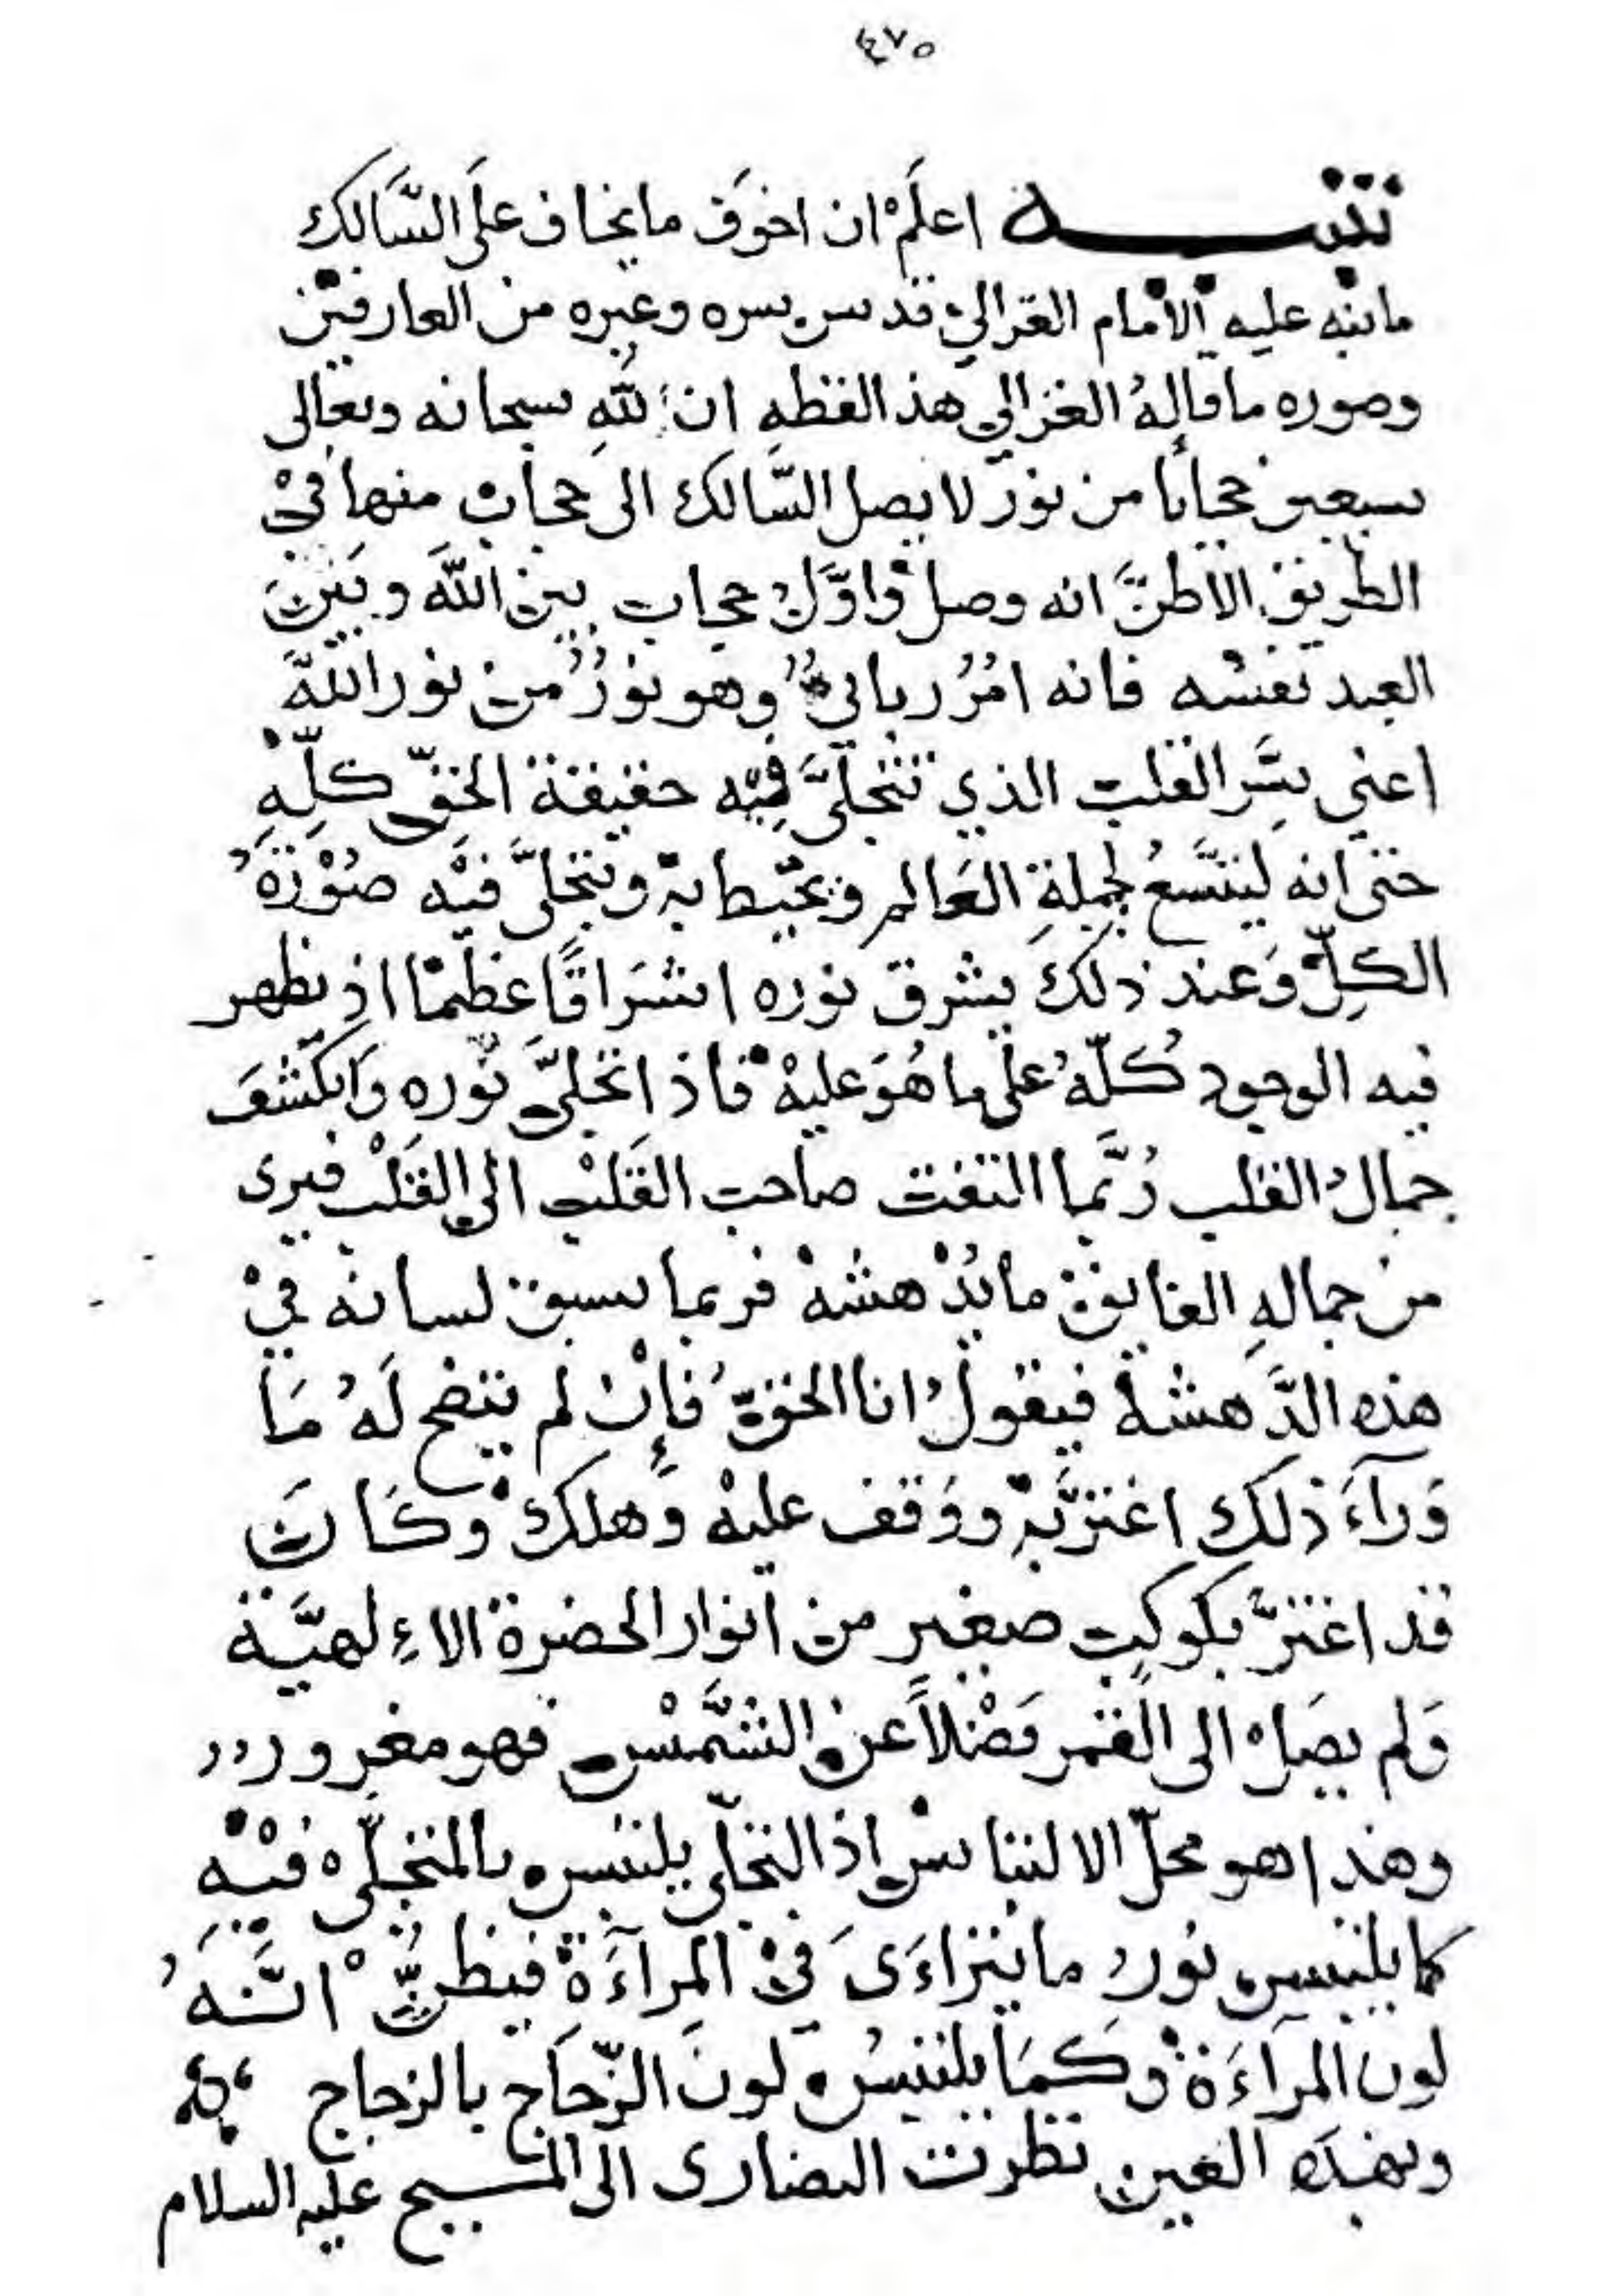 ٤٧٥
تنبيـــــه اعلَمْ ان اخوَف ما يخاف علَى السَّالك
ما نبّه عليه الامام الغزالي قدس سره وغيره من العارفين
وصوره ما قالهُ الغزالي هذ الفظهِ ان للهِ سبحانه وتعالى
سبعين حجابًا من نور لا يصل السَّالك الى حجاب منها فيْ
الطريق الا ظنَّ انه وصل واوَّلُ حجاب بين اللهَ وبَيْنَ
العبد نفسْه فانه امْرُ ربانيُّ وهو نوْرُ منْ نور اللهَ
اعني سِّر القلب الذي تتجلىَّ فِيْه حقيقة الحقّ كلِّهِ
حتى انه لَيتَّسعُ لجملةِ العَالم ويحيط به وتتجلىَّ فيْه صُوْرَةُ
الكلِّ وَعند ذلكَ يشرق نوره اشرَاقًا عظيمًا اذ يظهر
فيه الوجود كُلّهُ علَى ما هُوَ عليهْ فاذا تجلىَّ نُوره وَانكشَفَ
جمالُ القلب رُبَّما التفت صاحب القَلبْ الى القَلْب فيرى
من جمالهِ الفايق ما يُدْهشهْ فربما سبق لسانه فيْ
هذه الدَّهشة فيقولُ انا الحقُّ فإنْ لم يتضح لَهُ مَا
وَرآءَ ذلكَ اغترَّ بهْ ووَقف عليهْ وَهلكَ وكَانَ
قد اغترَّ بكوكبٍ صغير من انوار الحضرة الاءِلهيَّة
وَلم يصَلْ الى القمر فضْلاً عن الشَّمْس فهو مغرور
وهذا هو محلّ الالتباسْ اذ التجلّي يلتبس بالمتجلّى فيْهِ
كما يلتبس نُورُ ما يتراءَىَ فيْ المِرآءَة فيظنُّ انَّهُ
لونَ المرآءَة وكمَا يلتبسُ لونَ الزّجَاج بالزجاج
وبهذه العين نظرت النصارى الى المسيح عليه السلام